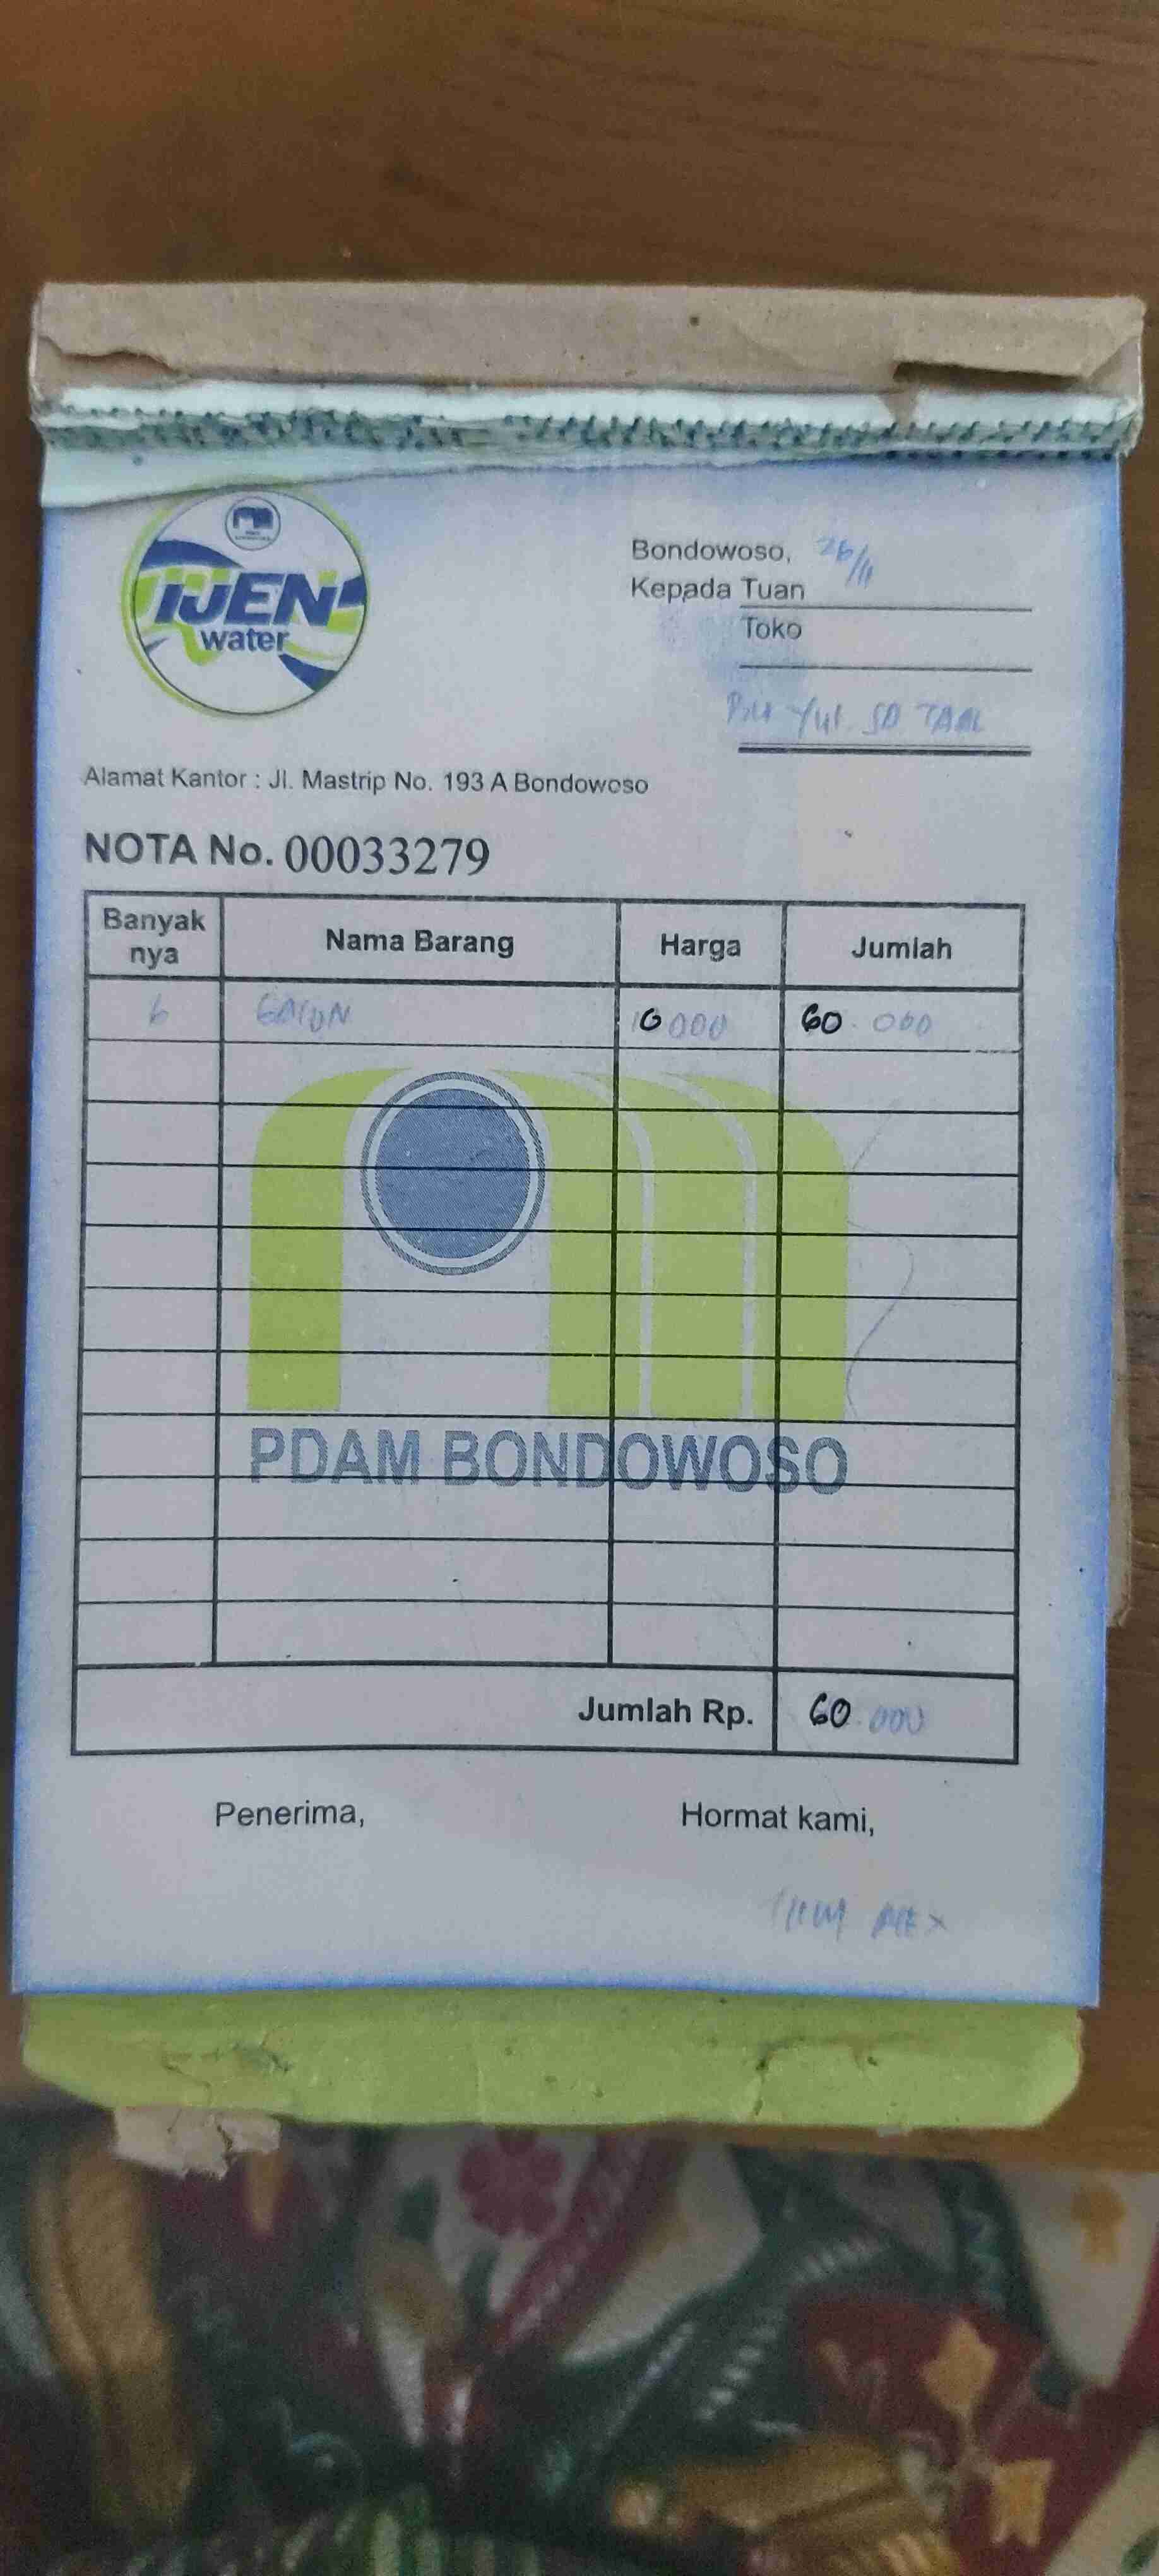 IJEN
water
Bondowoso, 26/11
Kepada Tuan
Toko
Bu Yul SD TAAL
Alamat Kantor : Jl. Mastrip No. 193 A Bondowoso
NOTA No. 00033279
Banyak nya Nama Barang Harga Jumlah
6 GALON 10000 60.000
PDAM BONDOWOSO
Jumlah Rp. 60.000
Penerima, Hormat kami,
ALEX